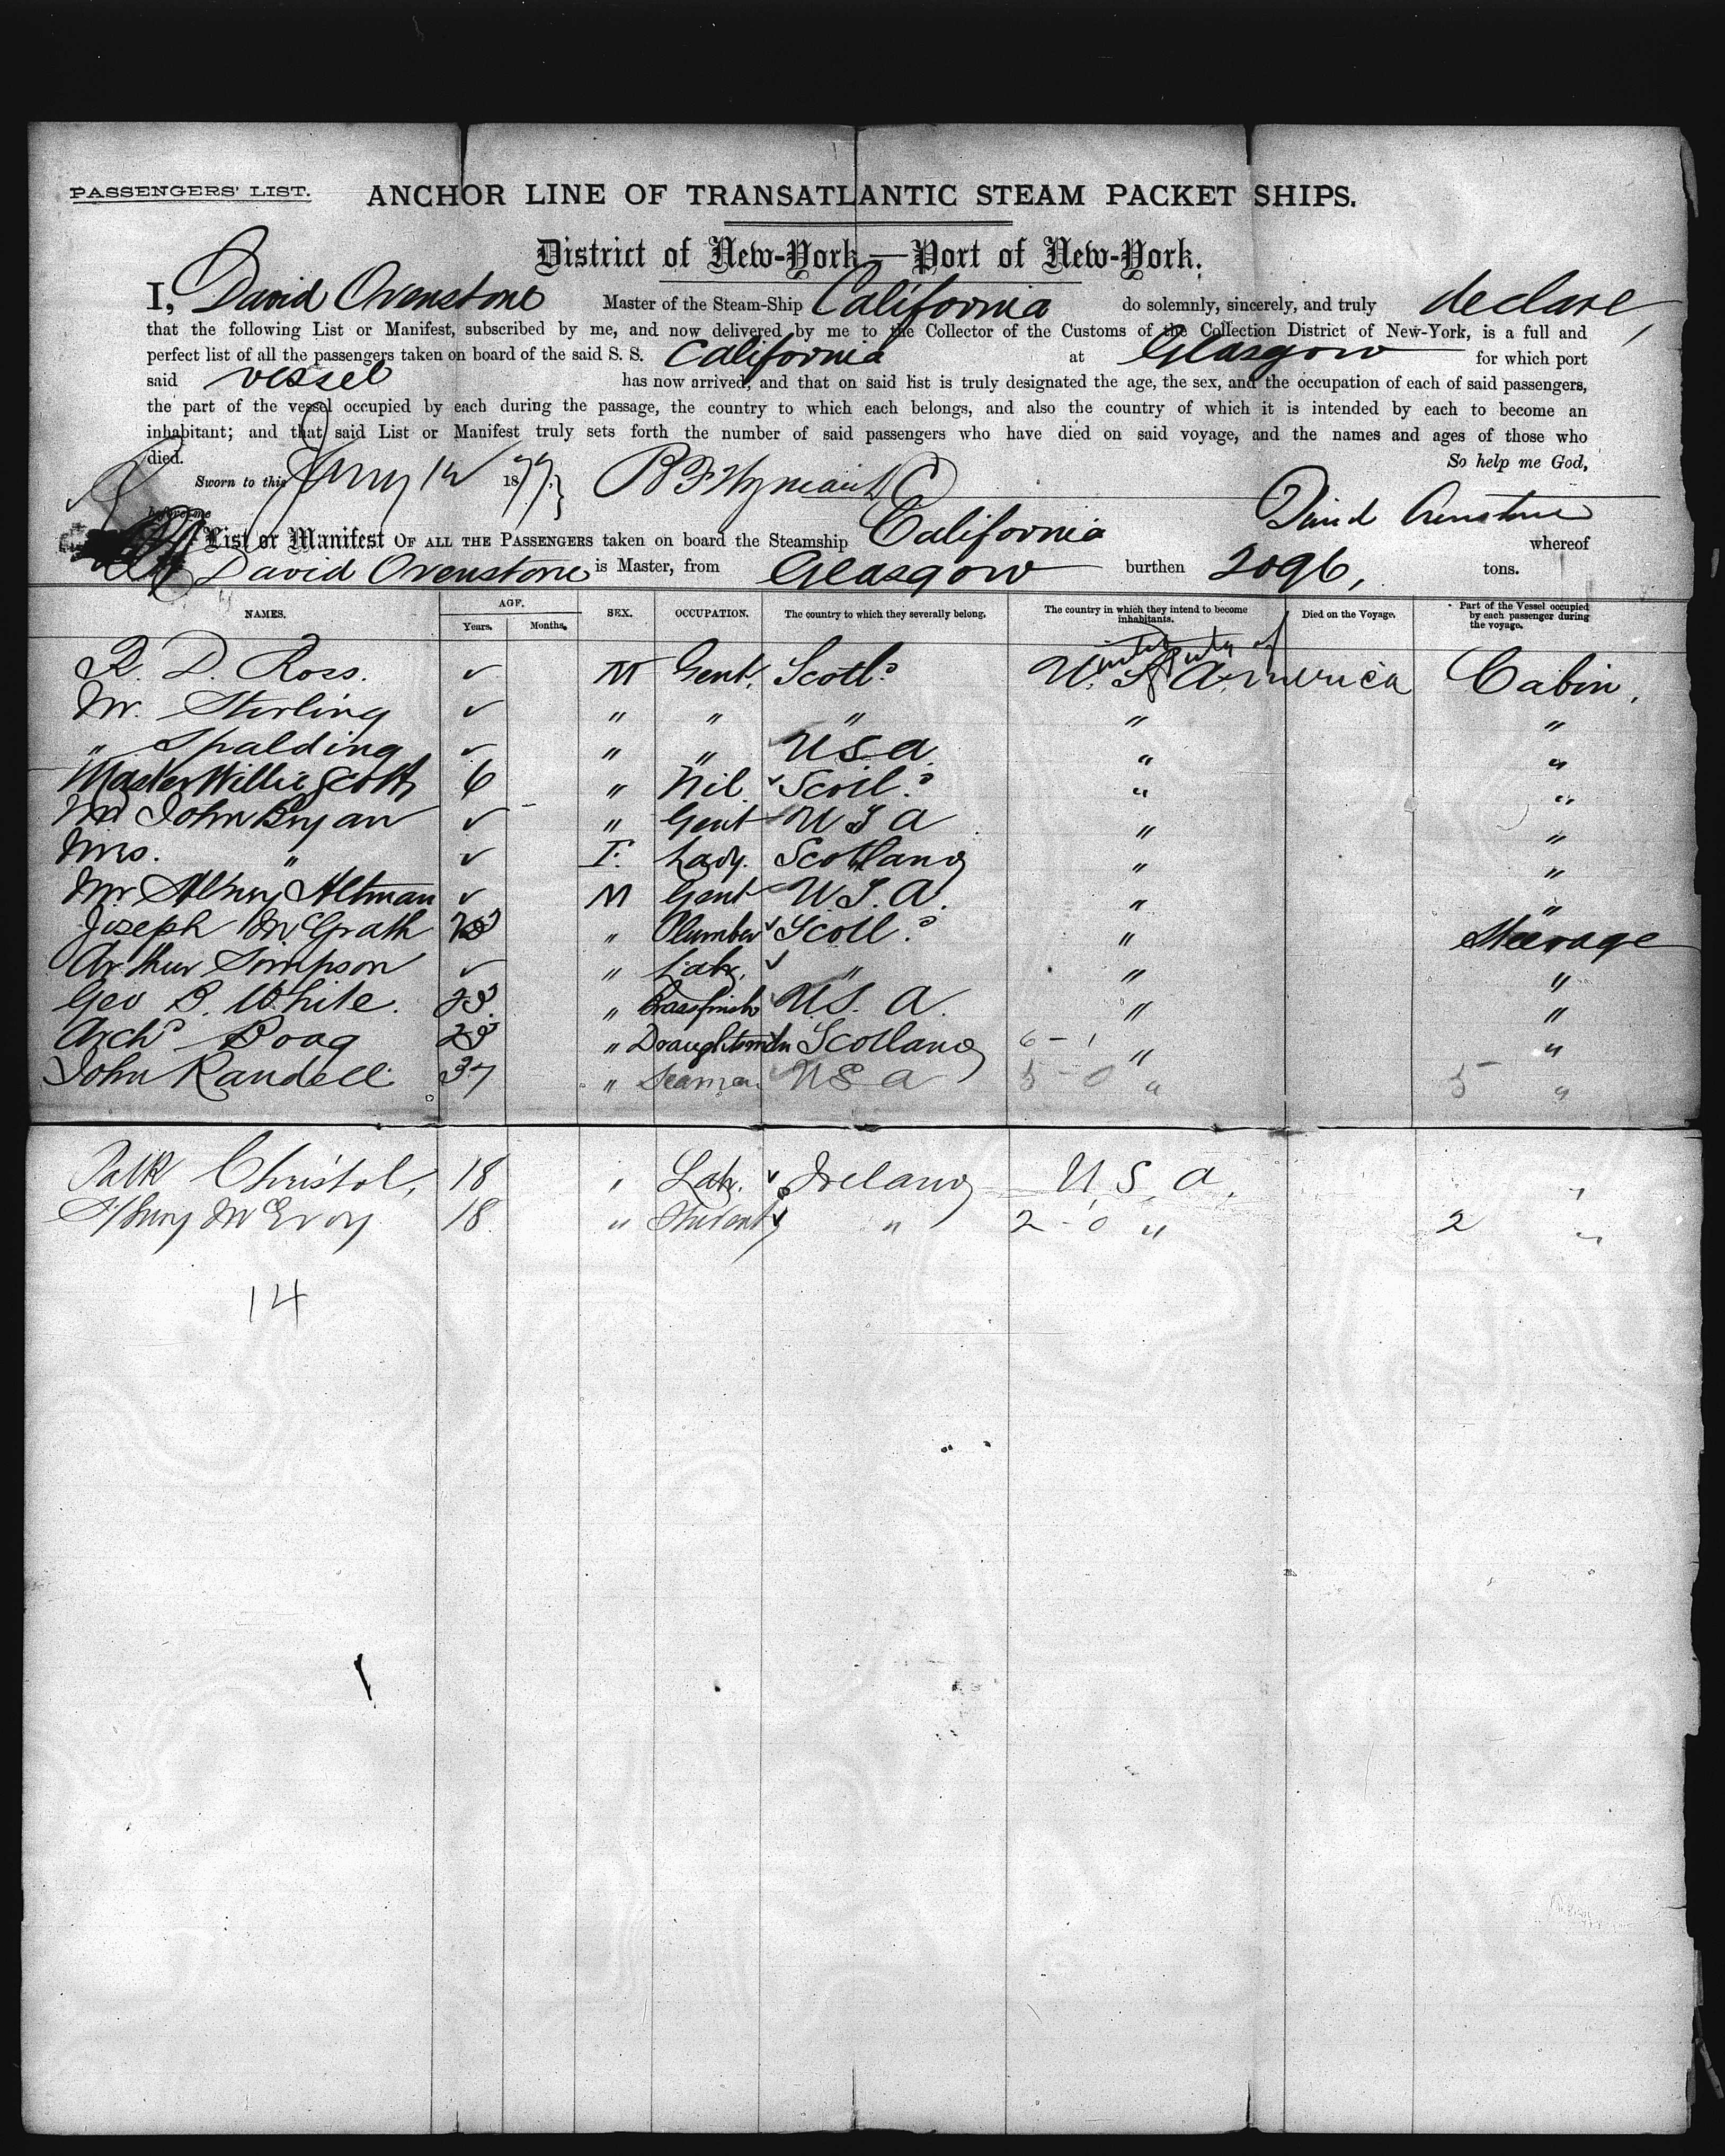 PASSENGERS' LIST. ANCHOR LINE OF TRANSATLANTIC STEAM PACKET SHIPS.
District of New-York—Port of New-York.
I, David Ovenstone Master of the Steam-Ship California do solemnly, sincerely, and truly declare,
that the following List or Manifest, subscribed by me, and now delivered by me to the Collector of the Customs of the Collection District of New-York, is a full and
perfect list of all the passengers taken on board of the said S. S. California at Glasgow for which port
said vessel has now arrived, and that on said list is truly designated the age, the sex, and the occupation of each of said passengers,
the part of the vessel occupied by each during the passage, the country to which each belongs, and also the country of which it is intended by each to become an
inhabitant; and that said List or Manifest truly sets forth the number of said passengers who have died on said voyage, and the names and ages of those who
died. So help me God,
Sworn to this 12 1877,
before me David Ovenstone
List or Manifest OF ALL THE PASSENGERS taken on board the Steamship California whereof
David Ovenstone is Master, from Glasgow burthen 2096, tons.
NAMES. AGE. Years. Months. SEX. OCCUPATION. The country to which they severally belong. The country in which they intend to become inhabitants. Died on the Voyage. Part of the Vessel occupied by each passenger during the voyage.
R. D. Ross. ✓ M Gent. Scotld U. S. America Cabin.
Mr. Stirling ✓ " " " " "
" Spalding ✓ " " U S a " "
Master Willie Scott 6 " Nil ✓ Scotld " "
Mr John Bryan ✓ " Gent U S A " "
Mrs. " ✓ F. Lady. Scotland " "
Mr. Henry Altman ✓ M Gent U. S. A. " "
Joseph McGrath " Plumber ✓ Scotld " Steerage
Arthur Simpson ✓ " Labr. ✓ " " "
Geo B. White. 23. " Brassfinishr U. S. A. " "
Archd Boag 23 " Draughtsman Scotland 6 - 1 " "
John Randell 37 " Seaman U S a 5 - 0 " 5 "
Patk Christol, 18 " Labr. ✓ Ireland U. S. A. "
Henry McEvoy 18 " Student ✓ " 2 - 0 " 2 "
14